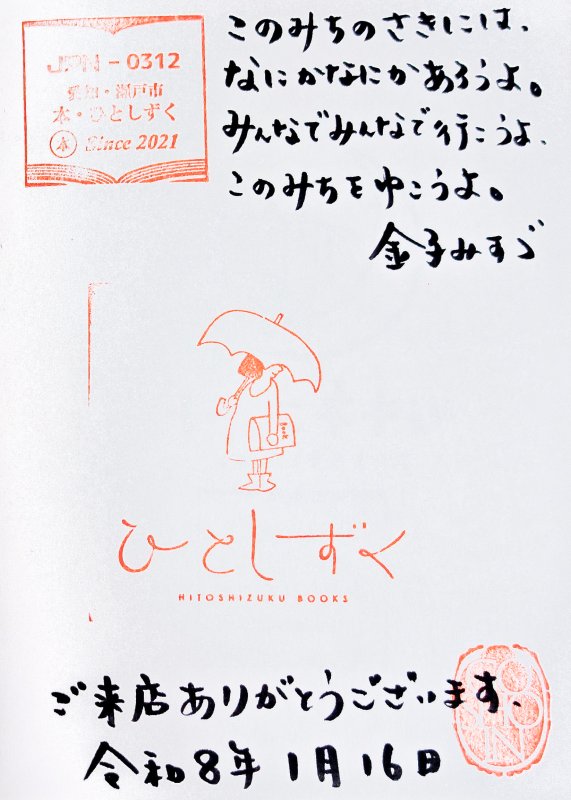 JPN-0312
愛知・瀬戸市
本・ひとしずく
本 Since 2021
このみちのさきには、
なにかなにかあろうよ。
みんなでみんなで行こうよ、
このみちをゆこうよ。
金子みすゞ
Book
ひとしずく
HITOSHIZUKU BOOKS
ご来店ありがとうございます、
令和8年1月16日